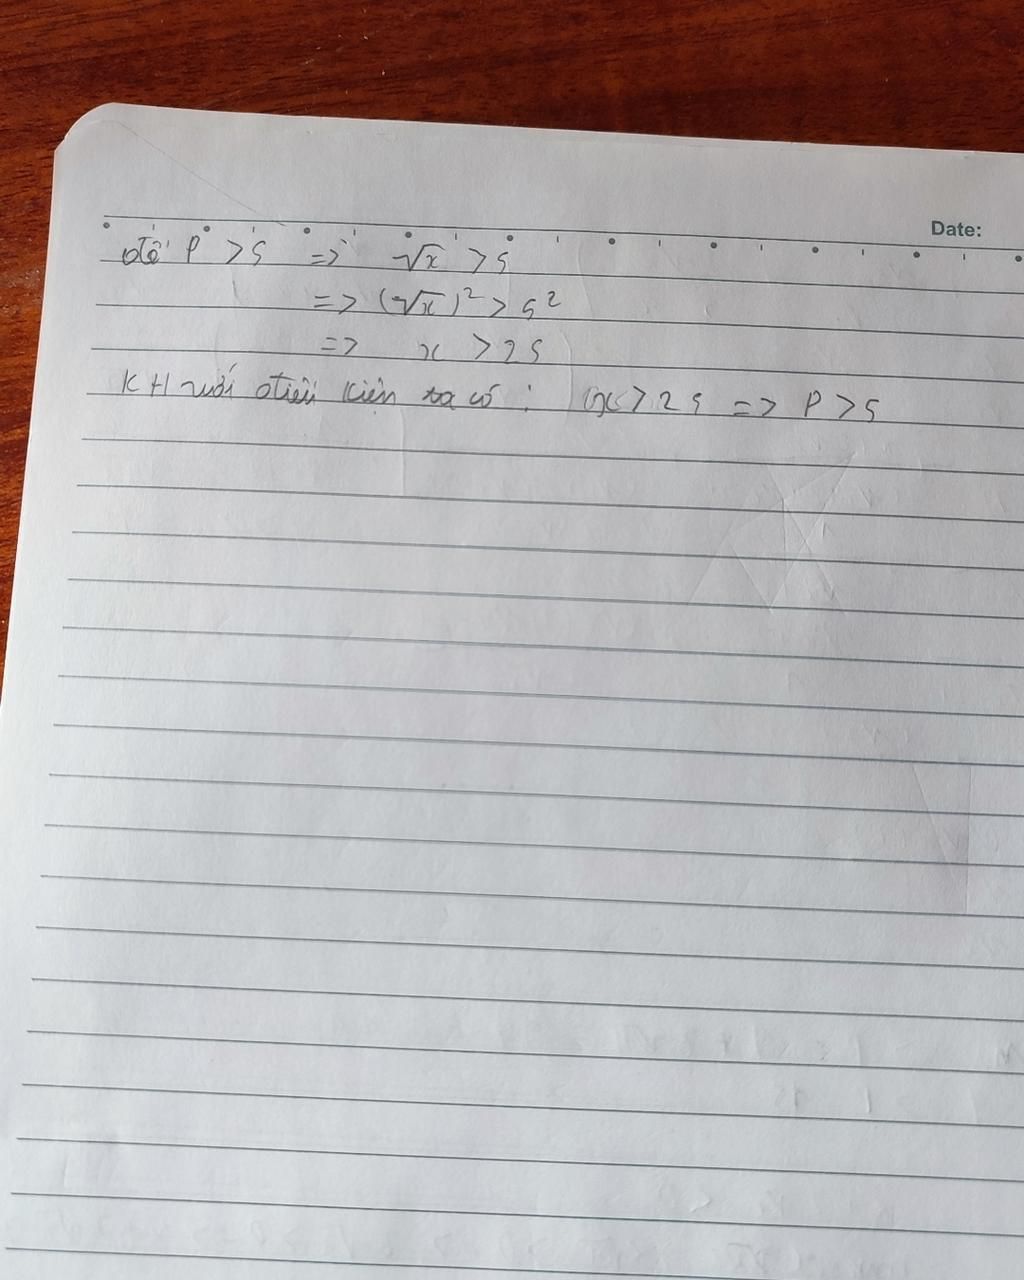 Date:
để P > 5 => √x > 5
=> (√x)² > 5²
=> x > 25
KH với điều kiện ta có : x > 25 => P > 5